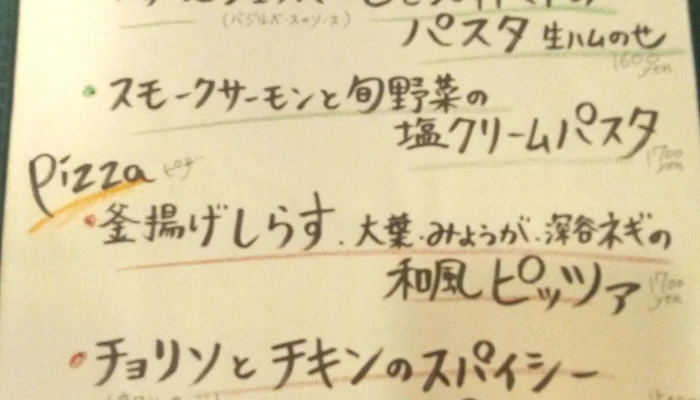 (バジルベースのソース)
パスタ 生ハムのせ
1600 yen
スモークサーモンと旬野菜の
塩クリームパスタ
1700 yen
Pizza ピザ
釜揚げしらす、大葉・みょうが・深谷ネギの
和風ピッツァ
1700 yen
チョリソとチキンのスパイシー